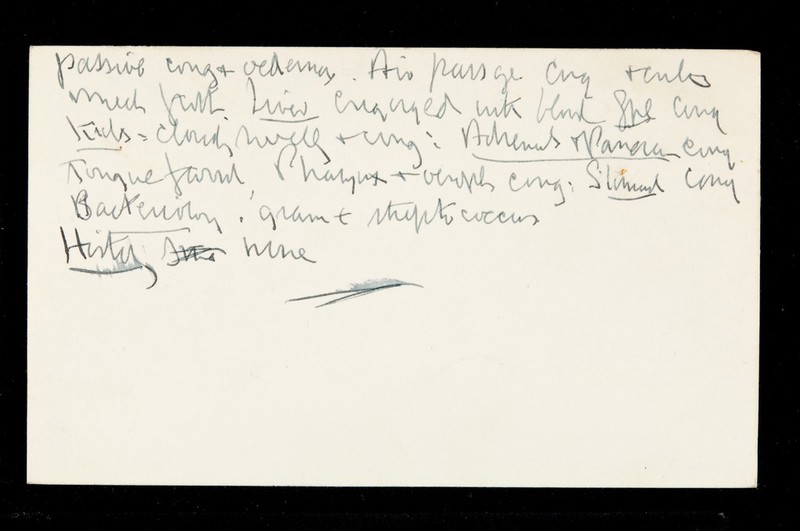 passive cong + oedema. Air passage cong + contains
much froth. Liver engorged with blood Spl cong
Kids = cloudy swellg + cong: Adrenals + Pancreas cong.
Tongue furred, Pharynx + oesoph cong: Stomach cong
Bacteriology: gram + streptococcus
Histol, none